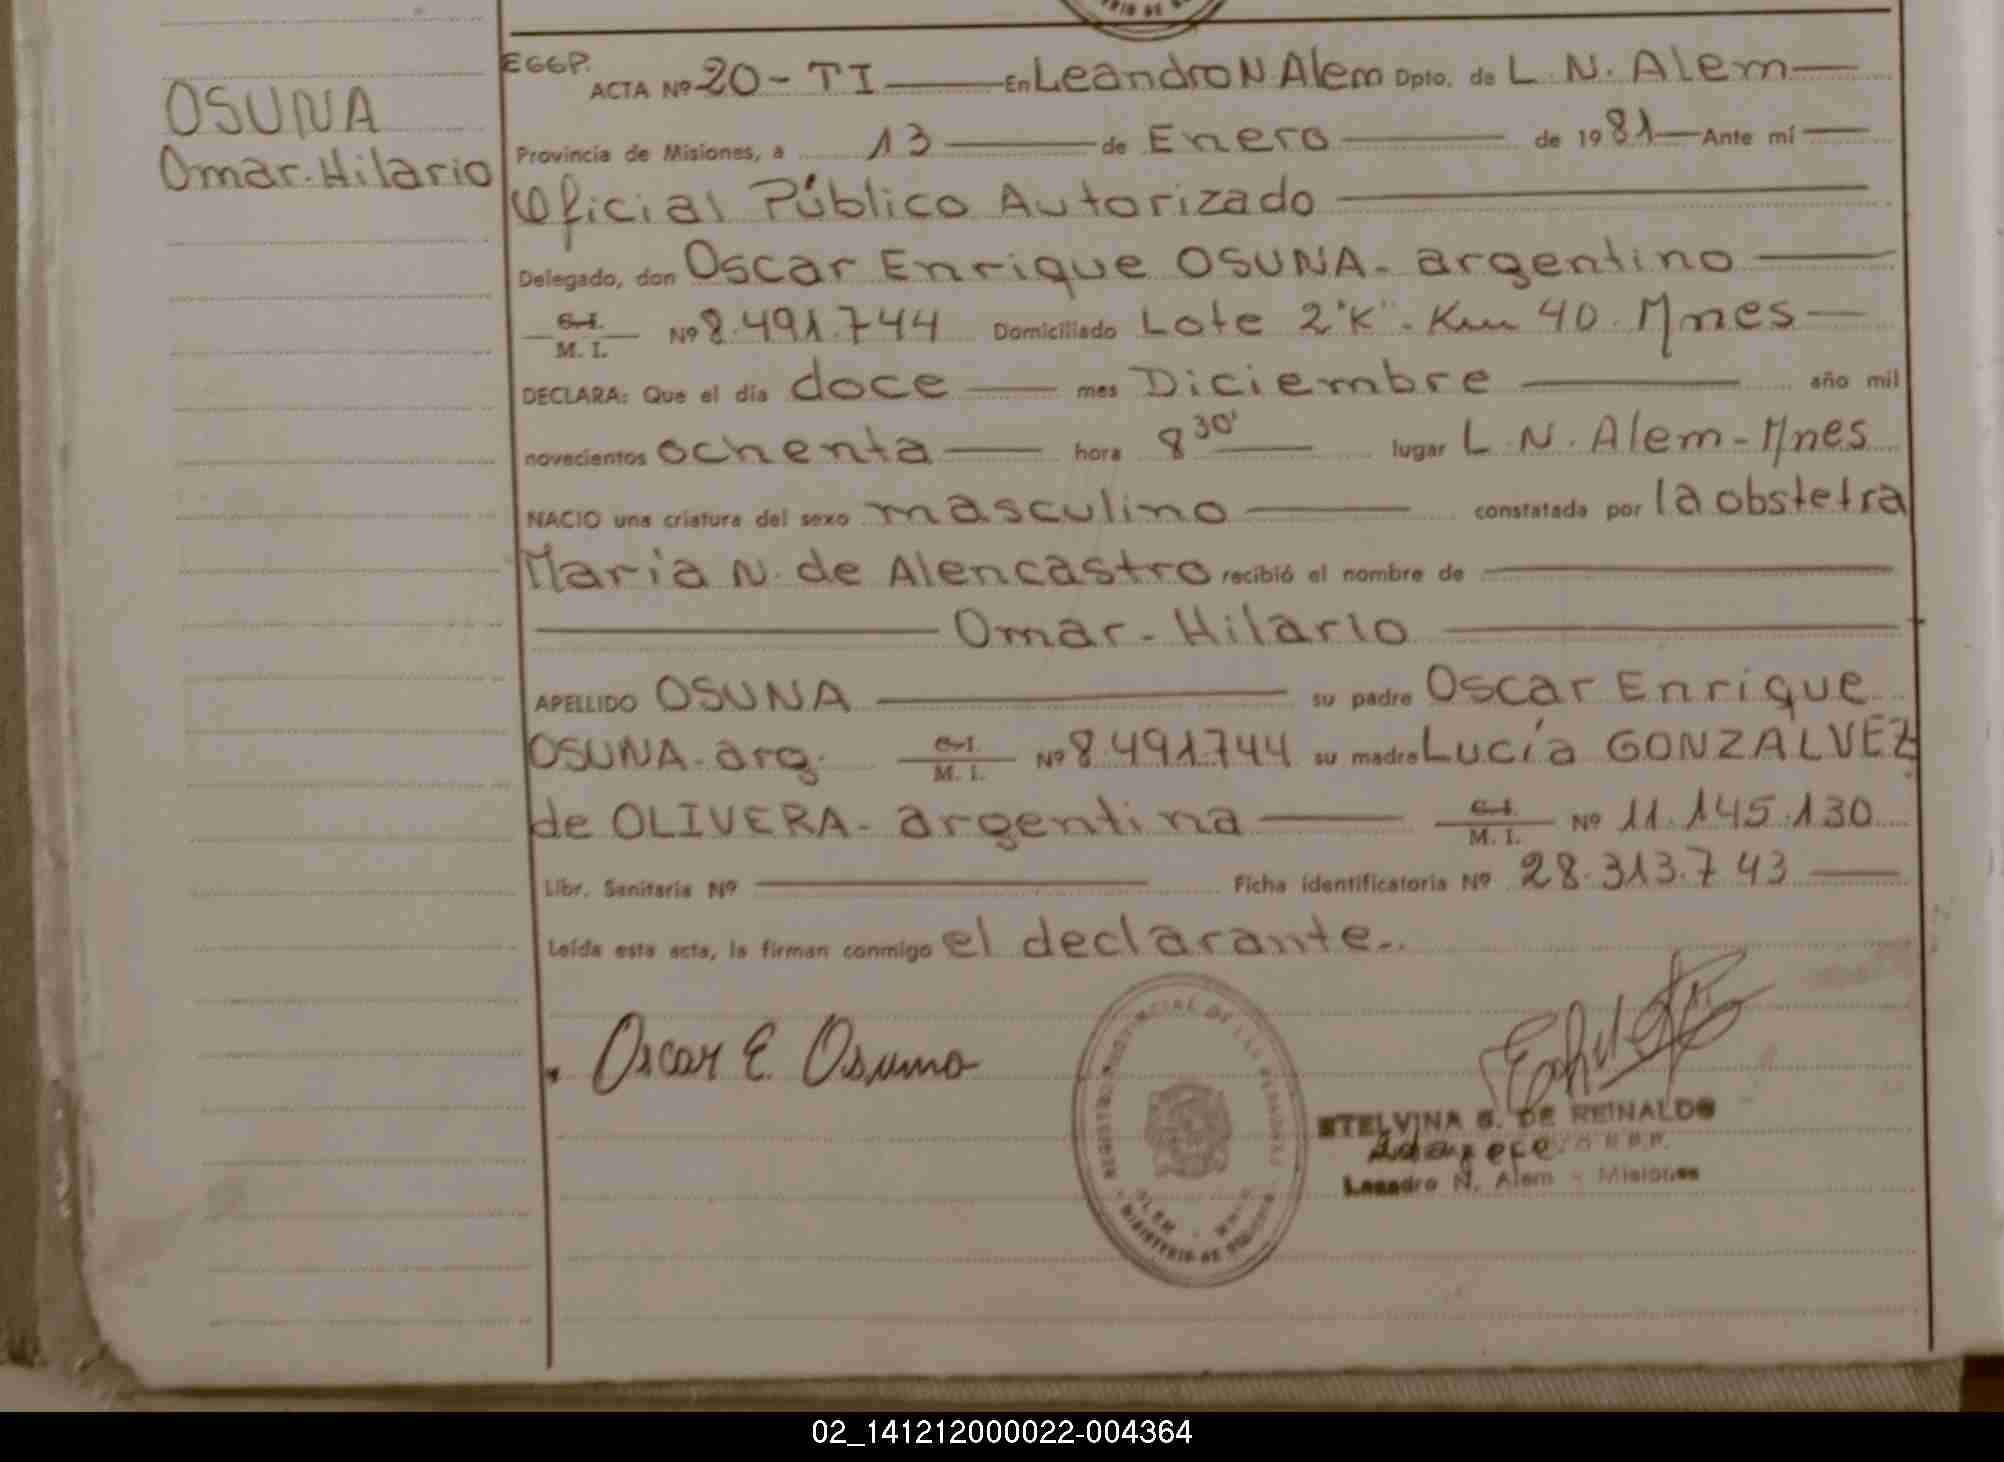 RIO DE
EGGP.
ACTA Nº 20 - TI En Leandro N Alem Dpto. de L. N. Alem
OSUNA
Omar-Hilario
Provincia de Misiones, a 13 de Enero de 1981 Ante mí
Oficial Público Autorizado
Delegado, don Oscar Enrique OSUNA - argentino
C.I. M. I. Nº 8.491.744 Domiciliado Lote 2 "K". Km 40. Mnes
DECLARA: Que el día doce mes Diciembre año mil
novecientos ochenta hora 8 30' lugar L. N. Alem - Mnes
NACIO una criatura del sexo masculino constatada por la obstetra
María N. de Alencastro recibió el nombre de
Omar - Hilario
APELLIDO OSUNA su padre Oscar Enrique
OSUNA - arg. C.I. M. I. Nº 8.491.744 su madre Lucía GONZALVEZ
de OLIVERA - argentina C.I. M. I. Nº 11.145.130
Libr. Sanitaria Nº Ficha identificatoria Nº 28.313.743
Leída esta acta, la firman conmigo el declarante..
Oscar E. Osuna
REGISTRO PROVINCIAL DE LAS PERSONAS
ALEM
MINISTERIO DE GOBIERNO
STELVINA G. DE REINALDO
Leandro N. Alem - Misiones
02_141212000022-004364